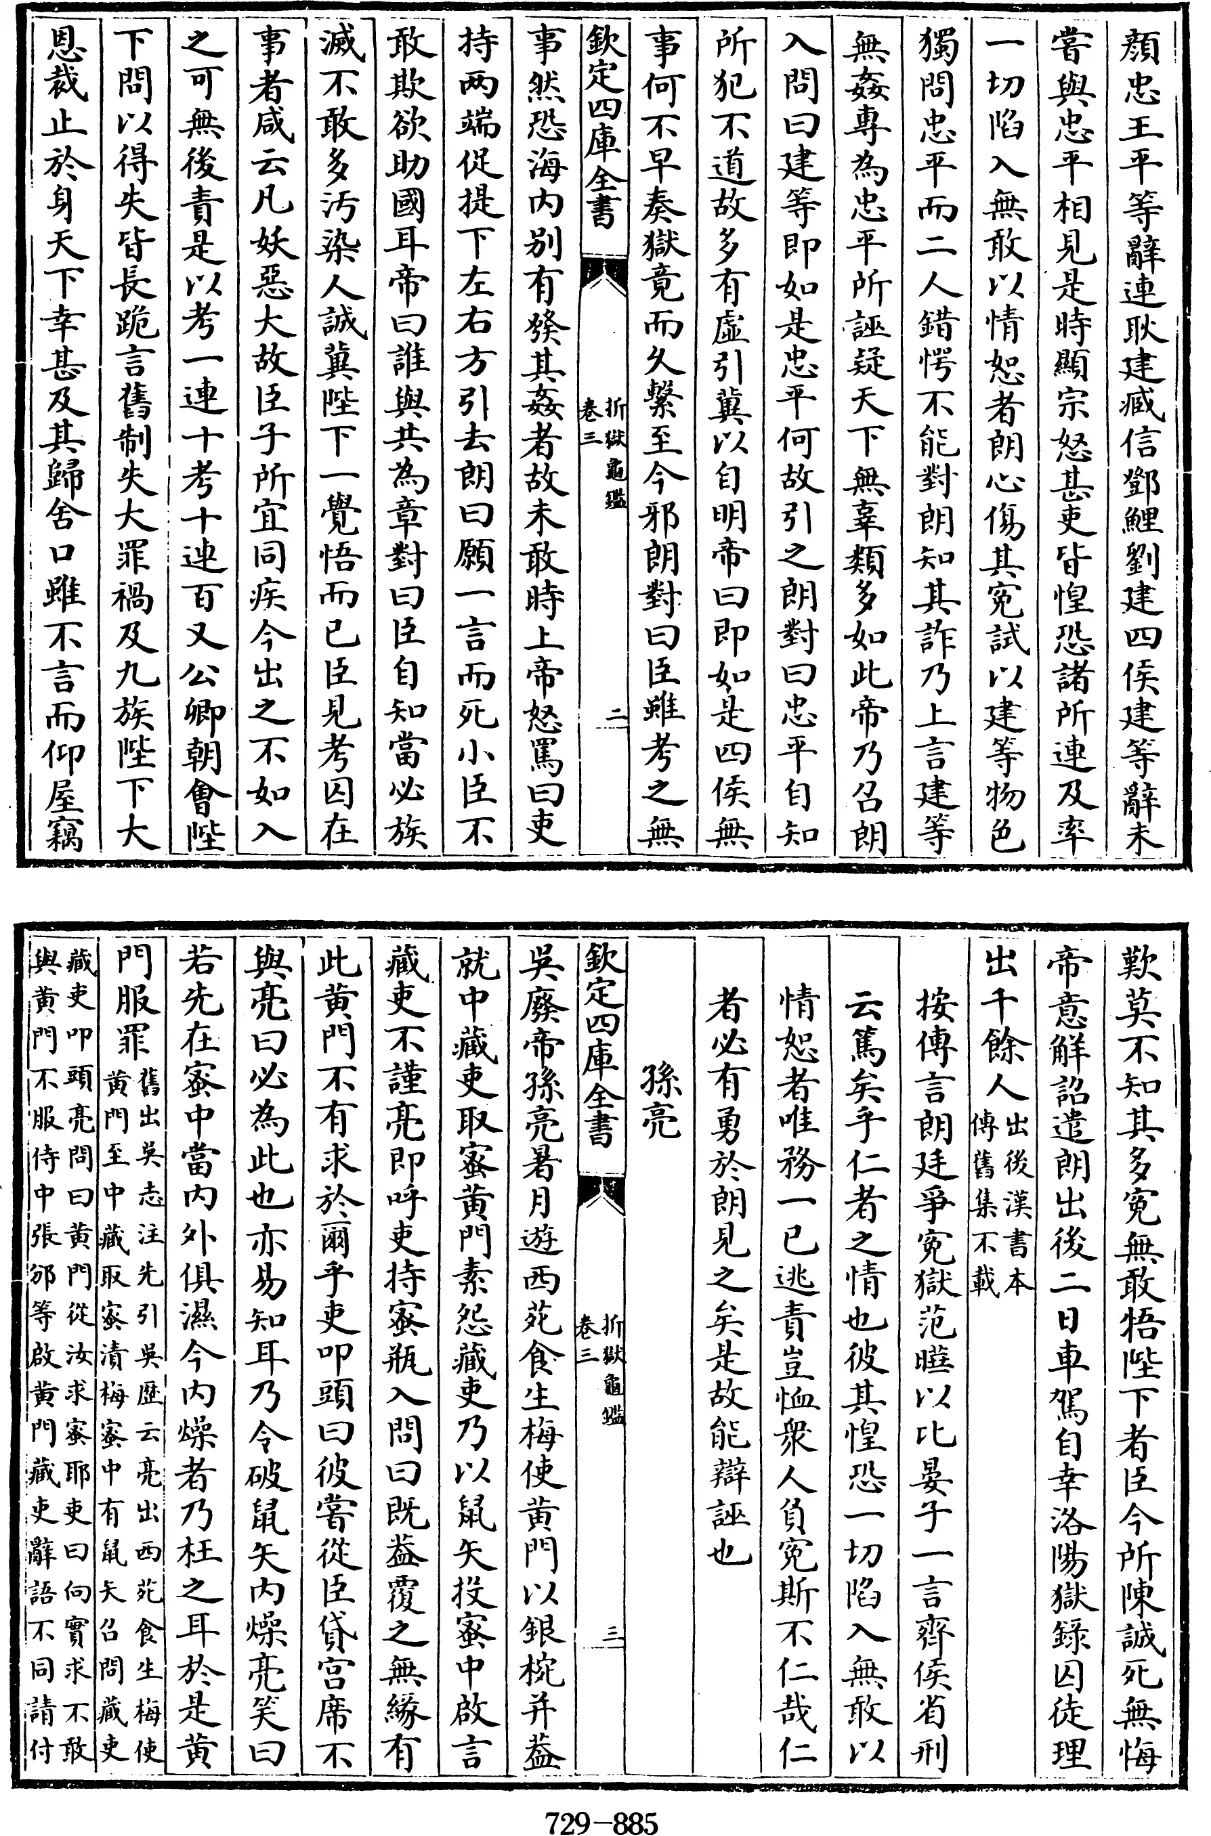 顏忠王平等辭連耿建臧信鄧鯉劉建四侯建等辭未
嘗與忠平相見是時顯宗怒甚吏皆惶恐諸所連及率
一切陷入無敢以情恕者朗心傷其寃試以建等物色
獨問忠平而二人錯愕不能對朗知其詐乃上言建等
無姦專為忠平所誣疑天下無辜類多如此帝乃召朗
入問曰建等即如是忠平何故引之朗對曰忠平自知
所犯不道故多有虛引冀以自明帝曰即如是四侯無
事何不早奏獄竟而久繫至今邪朗對曰臣雖考之無
欽定四庫全書
折獄龜鑑
卷三
二
事然恐海内别有發其姦者故未敢時上帝怒罵曰吏
持两端促提下左右方引去朗曰願一言而死小臣不
敢欺欲助國耳帝曰誰與共為章對曰臣自知當必族
滅不敢多汚染人誠冀陛下一覺悟而已臣見考囚在
事者咸云凡妖惡大故臣子所宜同疾今出之不如入
之可無後責是以考一連十考十連百又公卿朝會陛
下問以得失皆長跪言舊制失大罪禍及九族陛下大
恩裁止於身天下幸甚及其歸舍口雖不言而仰屋竊
歎莫不知其多寃無敢牾陛下者臣今所陳誠死無悔
帝意解詔遣朗出後二日車駕自幸洛陽獄錄囚徒理
出千餘人出後漢書本
傳舊集不載
按傳言朗廷爭寃獄范曄以比晏子一言齊侯省刑
云篤矣乎仁者之情也彼其惶恐一切陷入無敢以
情恕者唯務一已逃責豈恤衆人負寃斯不仁哉仁
者必有勇於朗見之矣是故能辯誣也
孫亮
欽定四庫全書
折獄龜鑑
卷三
三
吳廢帝孫亮暑月遊西苑食生梅使黄門以銀椀并葢
就中藏吏取蜜黄門素怨藏吏乃以鼠矢投蜜中啟言
藏吏不謹亮即呼吏持蜜瓶入問曰既葢覆之無緣有
此黄門不有求於爾乎吏叩頭曰彼嘗從臣貸宫席不
與亮曰必為此也亦易知耳乃令破鼠矢内燥亮笑曰
若先在蜜中當内外俱濕今内燥者乃枉之耳於是黄
門服罪舊出吳志注先引吳歴云亮出西苑食生梅使
黄門至中藏取蜜漬梅蜜中有鼠矢召問藏吏
藏吏叩頭亮問曰黄門從汝求蜜耶吏曰向實求不敢
與黄門不服侍中張邠等啟黄門藏吏辭語不同請付
729-885